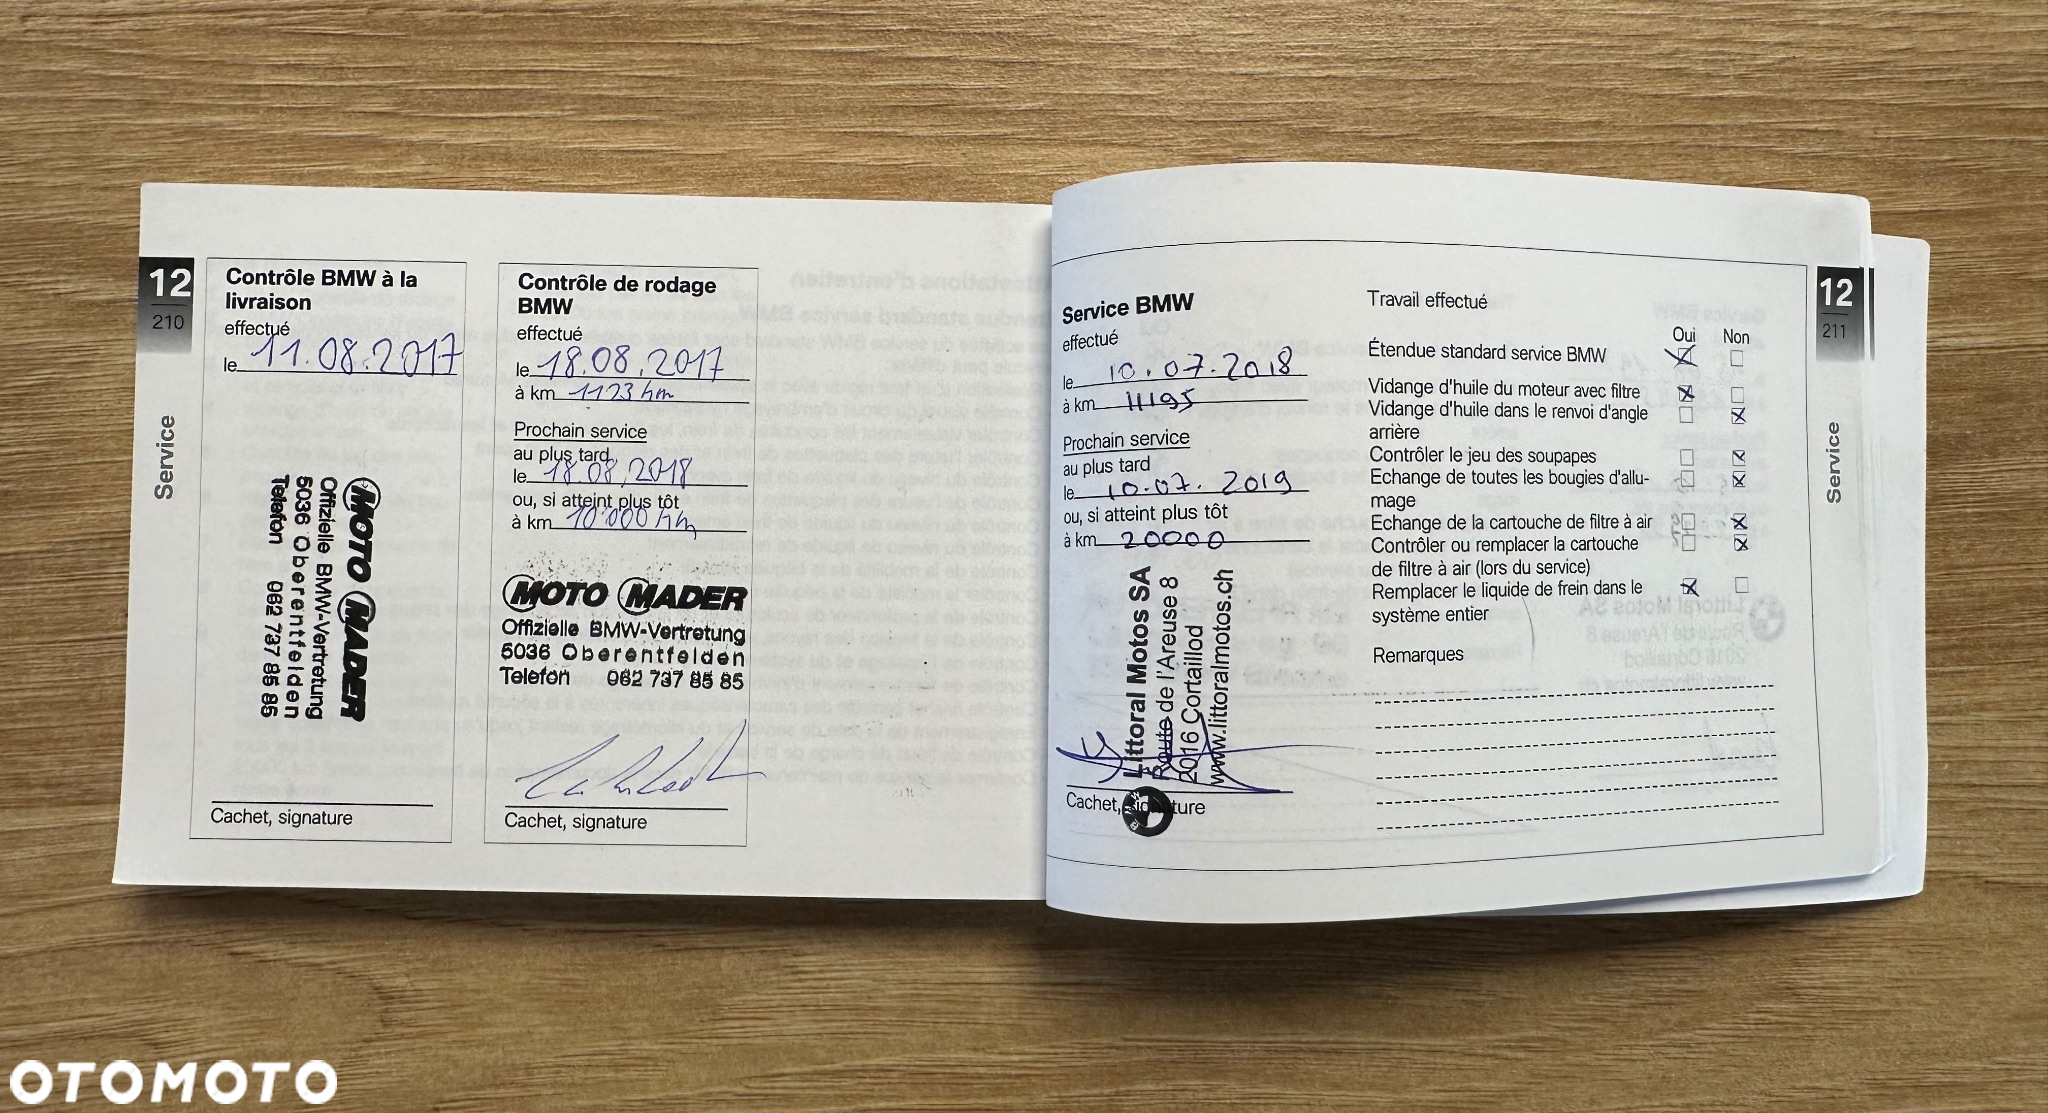 12
210
Service
Contrôle BMW à la
livraison
effectué
le 11.08.2017
MOTO MADER
Offizielle BMW-Vertretung
5036 Oberentfelden
Telefon 062 737 85 85
Cachet, signature
Contrôle de rodage
BMW
effectué
le 18.08.2017
à km 1123 km
Prochain service
au plus tard
le 18.08.2018
ou, si atteint plus tôt
à km 10'000 km
MOTO MADER
Offizielle BMW-Vertretung
5036 Oberentfelden
Telefon 062 737 85 85
Cachet, signature
Service BMW
effectué
le 10.07.2018
à km 11195
Prochain service
au plus tard
le 10.07.2019
ou, si atteint plus tôt
à km 20000
Littoral Motos SA
Route de l'Areuse 8
2016 Cortaillod
www.littoralmotos.ch
Cachet, signature
Travail effectué
Oui Non
Étendue standard service BMW
Vidange d'huile du moteur avec filtre
Vidange d'huile dans le renvoi d'angle
arrière
Contrôler le jeu des soupapes
Echange de toutes les bougies d'allu-
mage
Echange de la cartouche de filtre à air
Contrôler ou remplacer la cartouche
de filtre à air (lors du service)
Remplacer le liquide de frein dans le
système entier
Remarques
12
211
Service
OTOMOTO